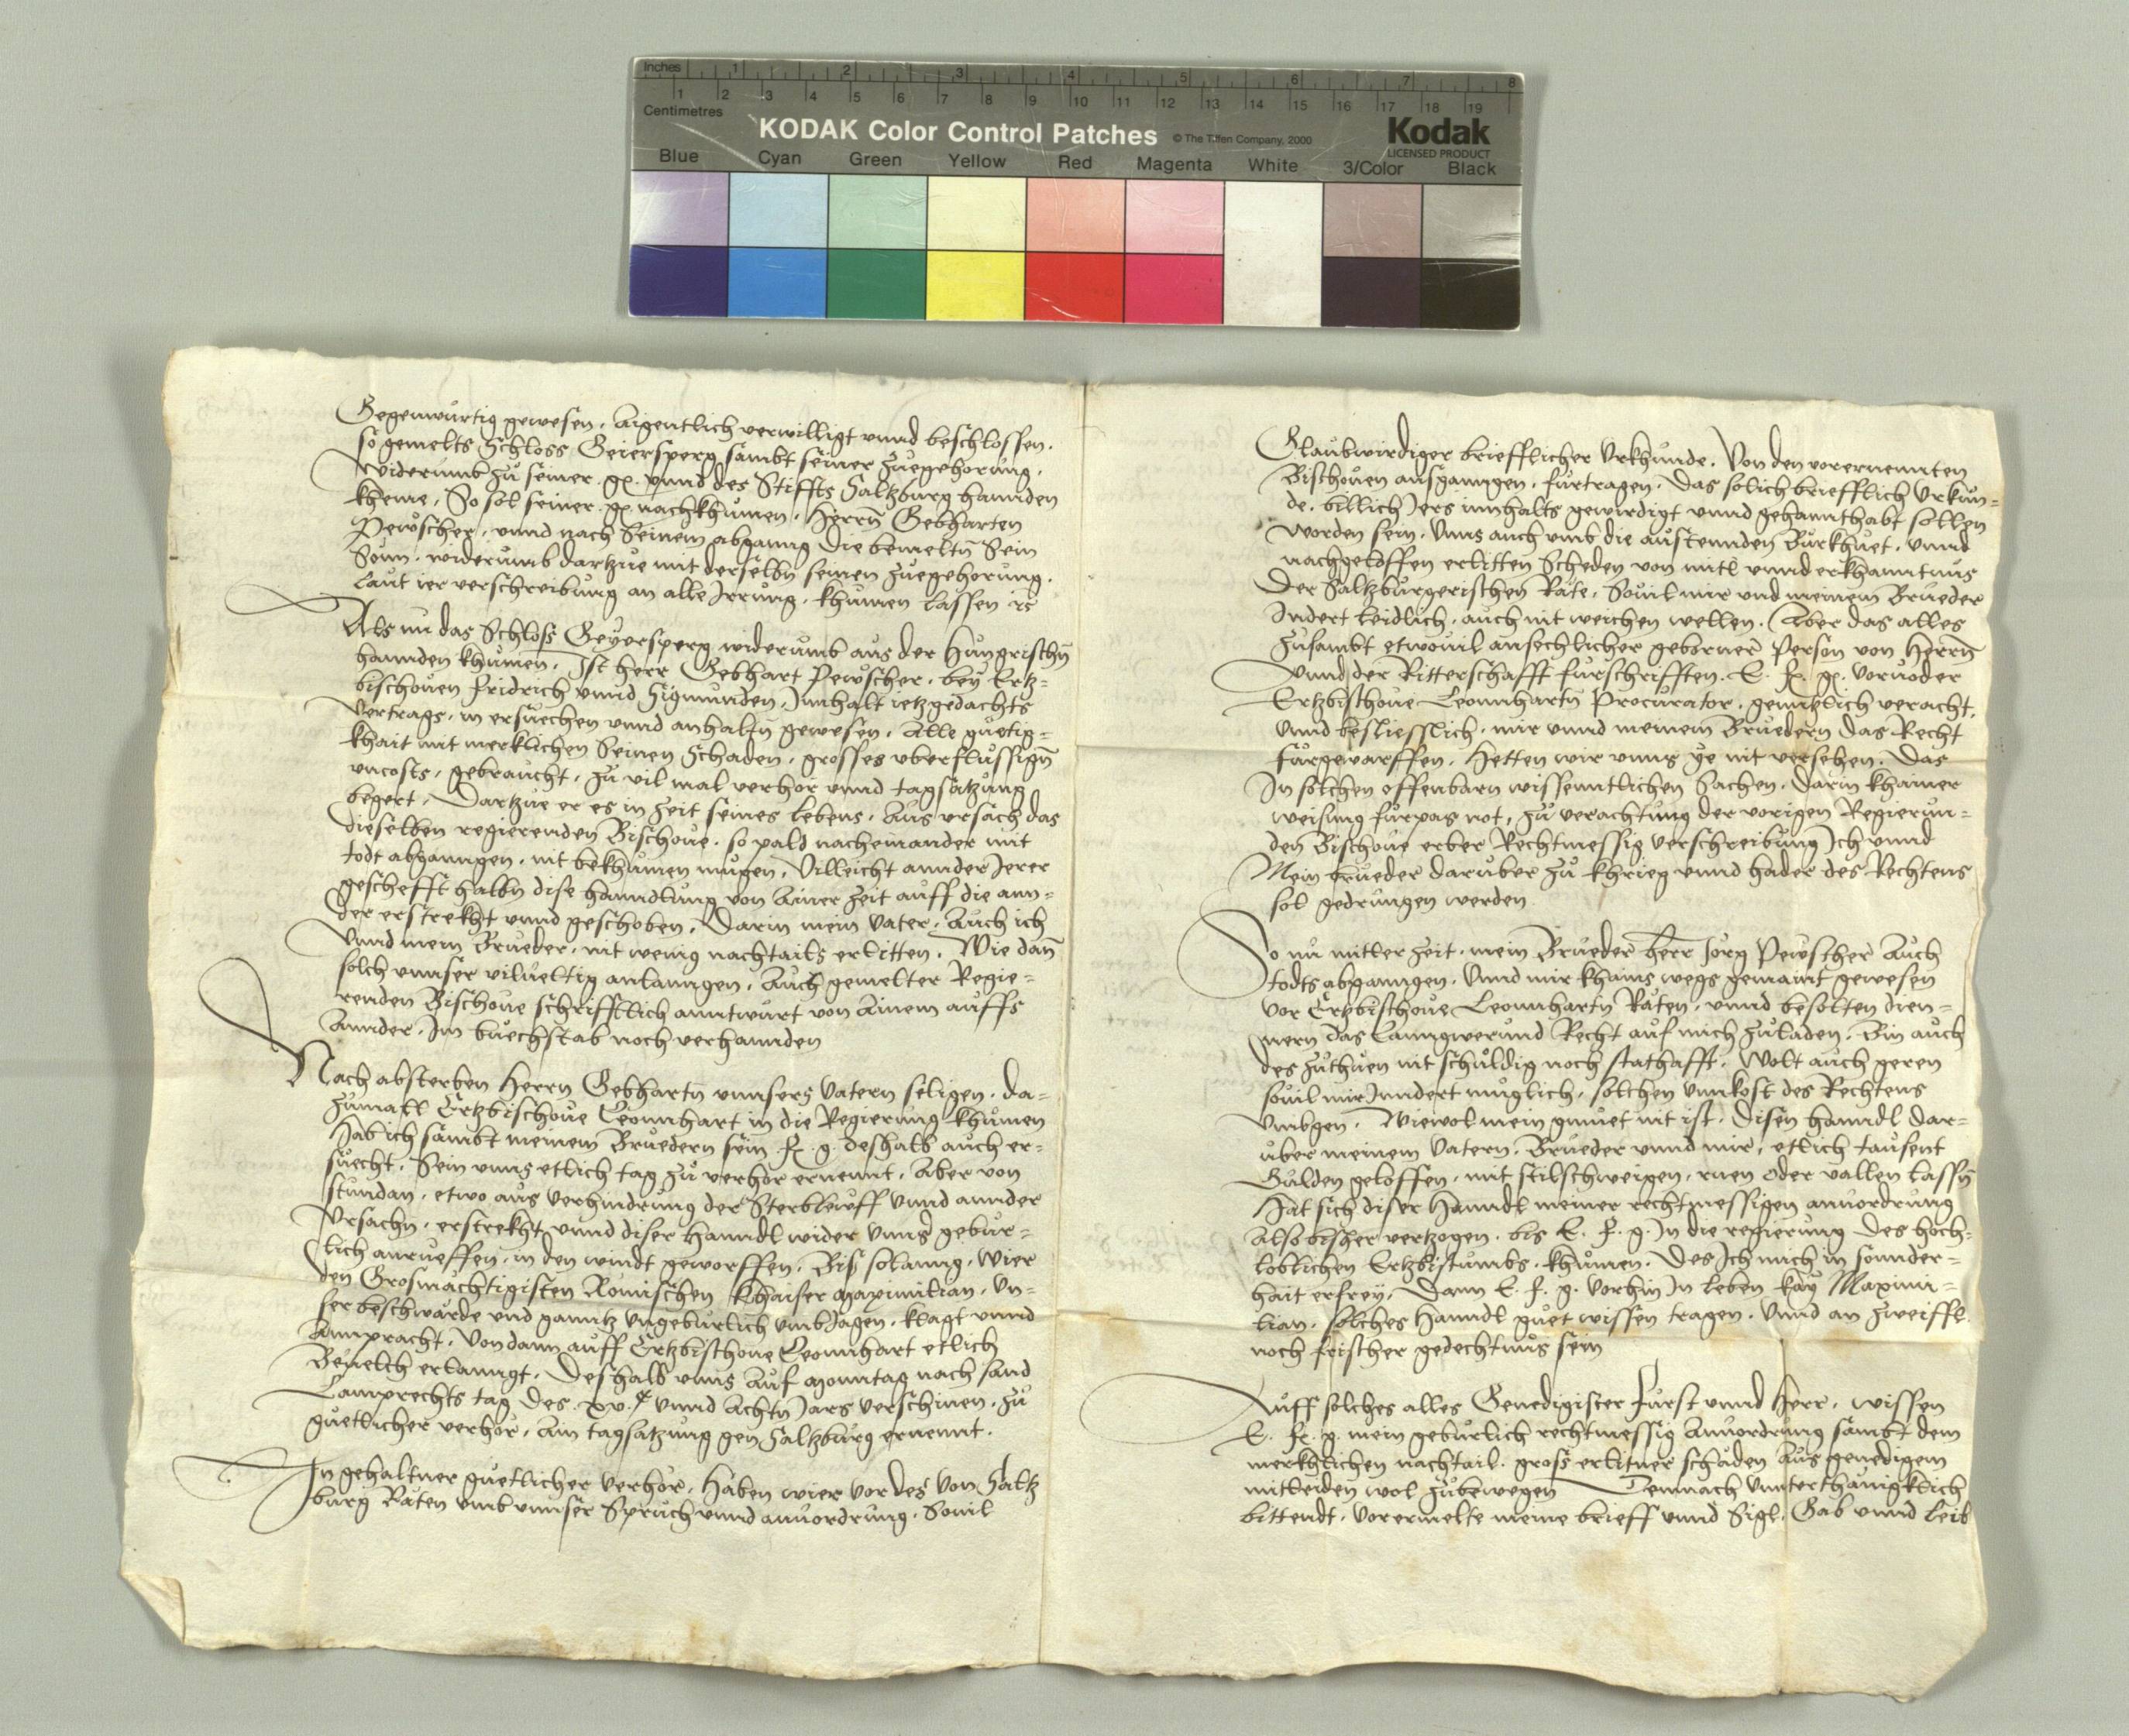 Inches 1 2 3 4 5 6 7 8
Centimetres 1 2 3 4 5 6 7 8 9 10 11 12 13 14 15 16 17 18 19
KODAK Color Control Patches © The Tiffen Company, 2000 Kodak
LICENSED PRODUCT
Blue Cyan Green Yellow Red Magenta White 3/Color Black
Gegenwurtig gewesen. Aigentlich verwilligt vnnd beschlossen.
so gemelts Schloss Geiersperg sambt seiner Zuegehorung.
widerumb zu seiner. g. vnnd des Stiffts Saltzburg hannden
kheme. So sol seiner. g. nachkhumen. Herrn Gebharten
Pewscher. vnnd nach Seinem abganng die bemeltn Sein
Sonn. widerumb dartzue mit derselbn seinen Zuegehorung.
Laut ier verschreibung an alle Irrung. khumen lassen
Als nu das Schloss Geyersperg widerumb aus der Hungrischn
hannden khumen. Ist herr Gebhart Pewscher. bey Ertz-
bischouen Fridrich vnnd Sigmunden. Innhalt ietzgedachts
vertrags. in ersuechen vnnd anhaltn gewesen. Alle guetig-
khait mit merklichen Seinen Schaden. grosses vberflussign
vncosts. gebraucht. zu vil mal verhor vnnd tagsatzung
begert. Dartzue er es in Zeit seines lebens. Aus vrsach das
dieselben regierenden Bischoue. so pald nacheinander mit
todt abganngen. nit bekhumen mugen. Villeicht annder Ierer
geschefft halbn dise hanndlung von Ainer Zeit auff die ann-
der erstrekht vnnd geschoben. Darin mein Vater. Auch ich
Vnnd mein Brueder. nit wenig nachtails erlitten. Wie dan
solch vnnser viluelltig anlanngen. Auch gemelter Regie-
renden Bischoue schrifftlich anntwurt von Ainem auffs
Annder. Im buechstab noch verhannden
Nach absterben Herrn Gebhartn vnnsers Vatern seligen. da-
Zumall Ertzbischoue Leonnhart in die Regierung khumen
Hab ich sambt meinem Bruedern sein f. g. deshalb auch er-
suecht. Sein vnns etlich tag zu verhor ernennt. Aber von
stundan. etwo aus verhindrung der Sterbleuff vnnd annder
Vrsachn. erstrekht vnnd diser hanndl wider vnns gebur-
lich anrueffen. in den windt geworffen. Bis solanng. Wier
den Grosmachtigisten Romischen Khaiser Maximilian. Vn-
ser beschwarde vnd ganntz vngeburlich vmbJagen. klagt vnnd
Annpracht. Von dann auff Ertzbischoue Leonnhart etlich
Beuelch erlanngt. Deshalb vnns Auf Monntag nach sand
Lamprechts tag des. xv. vnnd Achtn Jars verschinen. Zu
guetlicher verhor. Ain tagsatzung gen Saltzburg ernennt.
In gehaltner guetlicher verhor. Haben wier vor des von Saltz
burg Raten vmb vnnser Spruch vnnd anuordrung. Souil
Glaubwirdiger briefflicher Vrkhunde. Von den vorernennten
Bischouen ausganngen. furtragen. Das solich briefflich Vrkun-
de. billich Iers innhalts gewirdigt vnnd gehannthabt sollen
worden sein. Vnns auch vmb die austennden Burkhuet. vnnd
nachgeloffen erlitten Scheden von mitl vnnd erkhanntnus
Der Saltzburgerischen Rate. Souil mir vnd meinem Brueder
Indert leidlich. auch nit weichen wellen. Aber das alles
Zusambt etwouil ansechlicher geborner Person von Herrn
Vnnd der Ritterschafft furschrifften. E. f. g. voruoder
Ertzbischoue Leonnhartn Procurator. genntzlich veracht.
Vnnd besliesslich. mir vnnd meinem Bruedern das Recht
furgeworffen. Hetten wir vnns ye nit versehen. Das
In solchen offenbarn wissenntlichen Sachen. darin khainer
weisung furpas not. zu verachtung der vorigen Regierun-
den Bischoue erber Rechtmessig verschreibung Ich vnnd
Mein brueder daruber zu khrieg vnnd hader des Rechtens
sol gedrungen werden
So nu mitler Zeit. mein Brueder herr Jorg Pewscher Auch
todts abganngen. Vnnd mir khains wegs gemaint gewesen
Vor Ertzbischoue Leonnhartn Raten. vnnd besolten dien-
nern das Lanngwerund Recht auf mich zuladen. Bin auch
des zuthuen nit schuldig noch stathafft. Wolt auch geren
souil mir Inndert muglich. solchen vnnkost des Rechtens
Vmbgen. Wiewol mein gmuet nit ist. Disen hanndl dar-
uber meinem Vatern. Brueder vnnd mir. etlich tausent
Gulden geloffen. mit stilschweigen. ruen oder vallen lassn
Hat sich diser Hanndl meiner rechtmessigen anuordrung
Also bisher vertzogen. bis E. f. g. In die regierung des hoch-
loblichen Ertzbistumbs. khumen. Des Ich mich in sonnder-
hait erfrey. Dann E. f. g. vorhin In leben kay Maximi-
lian. solches Hanndl guet wissen tragen. Vnnd an zweiffl
noch frischer gedechtnus sein
Auff solches alles Genedigister Furst vnnd Herr. wissen
E. f. g. mein geburlich rechtmessig Anuordrung sambt dem
merkhlichen nachtail. gros erlitner schaden Aus genedigem
mitleiden wol zubewegen Demnach Vnnterthanigklich
bittendt. vorermelte meine brieff vnnd Sigl. Gab vnnd Leib